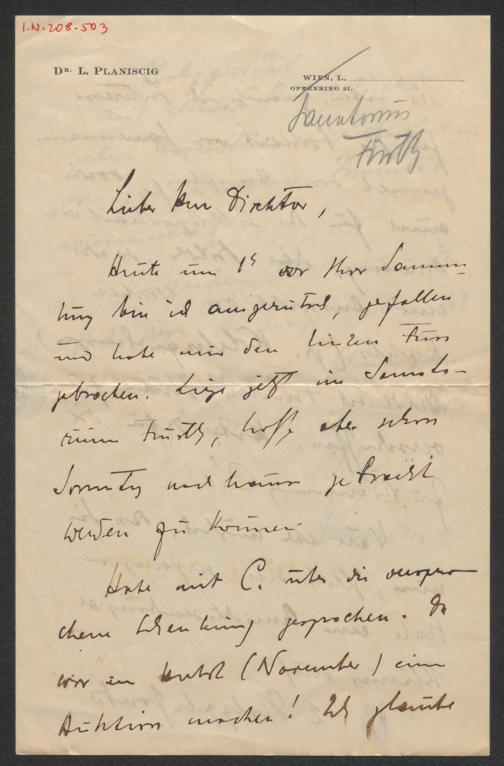 I.N. 208.503
Dr. L. PLANISCIG
WIEN, I.,
OPERNRING 21.
Sanatorium
Fürth
Lieber Herr Direktor,
Heute um 1h vor Ihrer Samm-
lung bin ich ausgerutscht, gefallen
und habe mir den linken Fuss
gebrochen. Liege jetzt im Sanato-
rium Fürth, hoffe aber schon
Sonntag nach Hause gebracht
werden zu können.
Habe mit C. über die verspro-
chene Schenkung gesprochen. Er
will im Herbst (November) eine
Auktion machen! Ich glaube